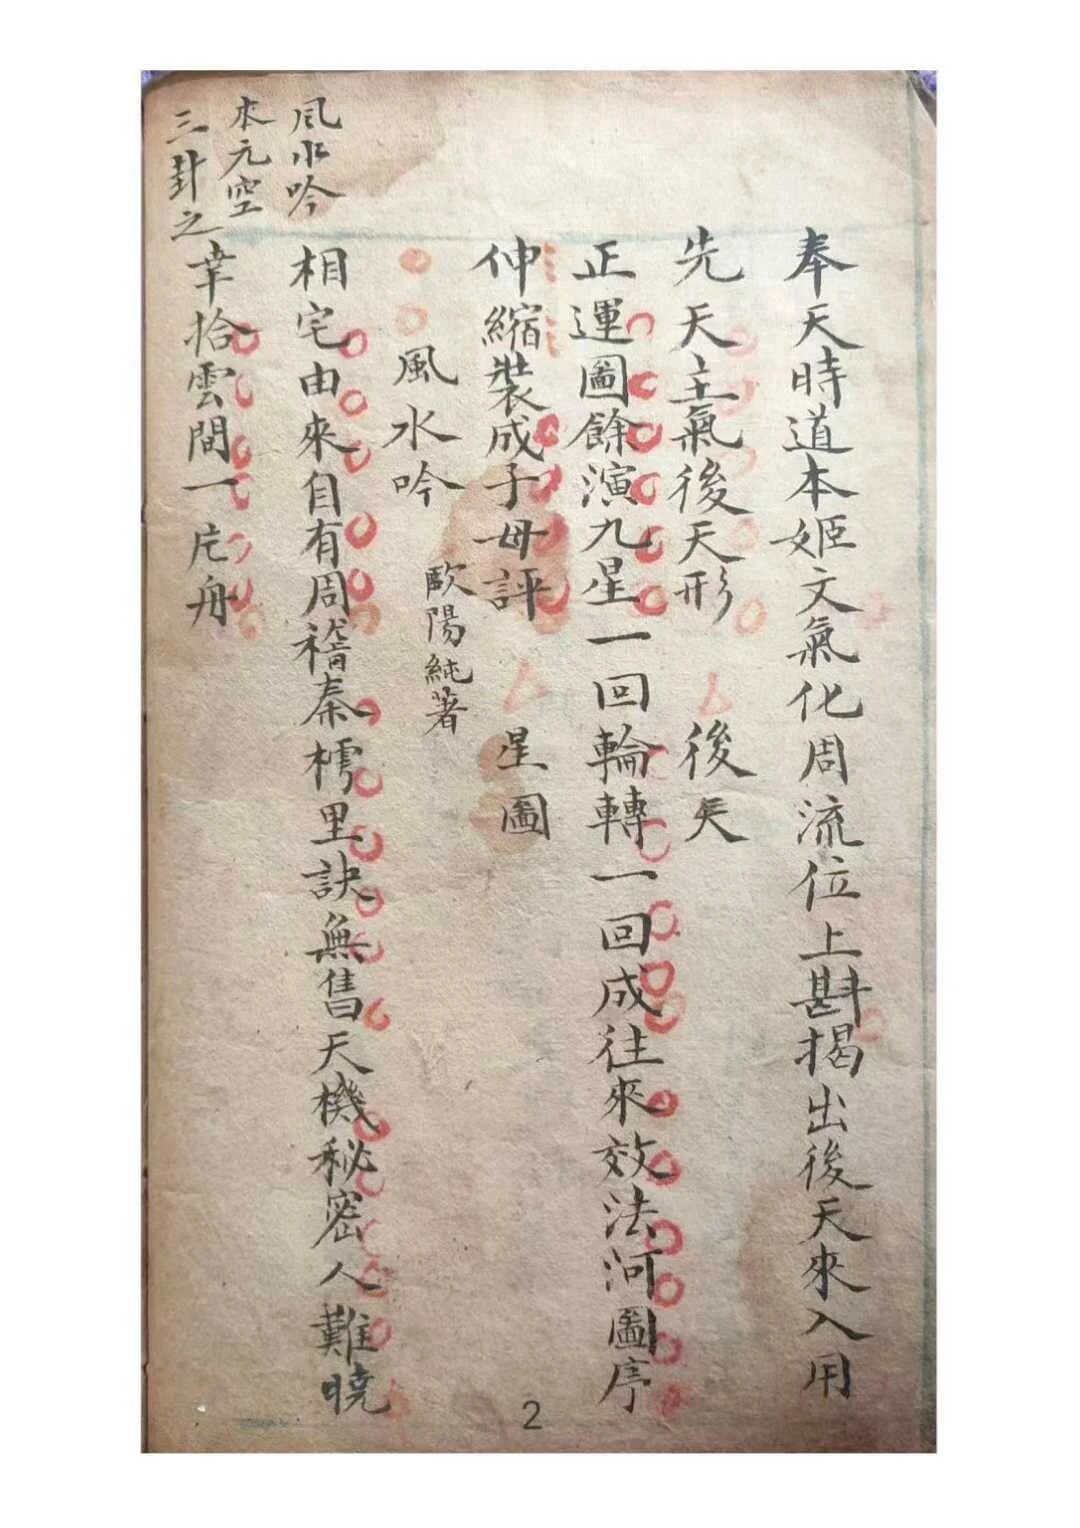 奉天時道本姬文氣化周流位上斟揭出後天來入用
先天主氣後天形　後天
正運圖餘演九星一回輪轉一回成往來效法河圖序
伸縮裝成子母評　星圖
風水吟
歐陽純著
風水吟
相宅由來自有周稽秦樗里訣無售天機秘密人難曉
本元空
三卦之
幸拾雲間一片舟
2